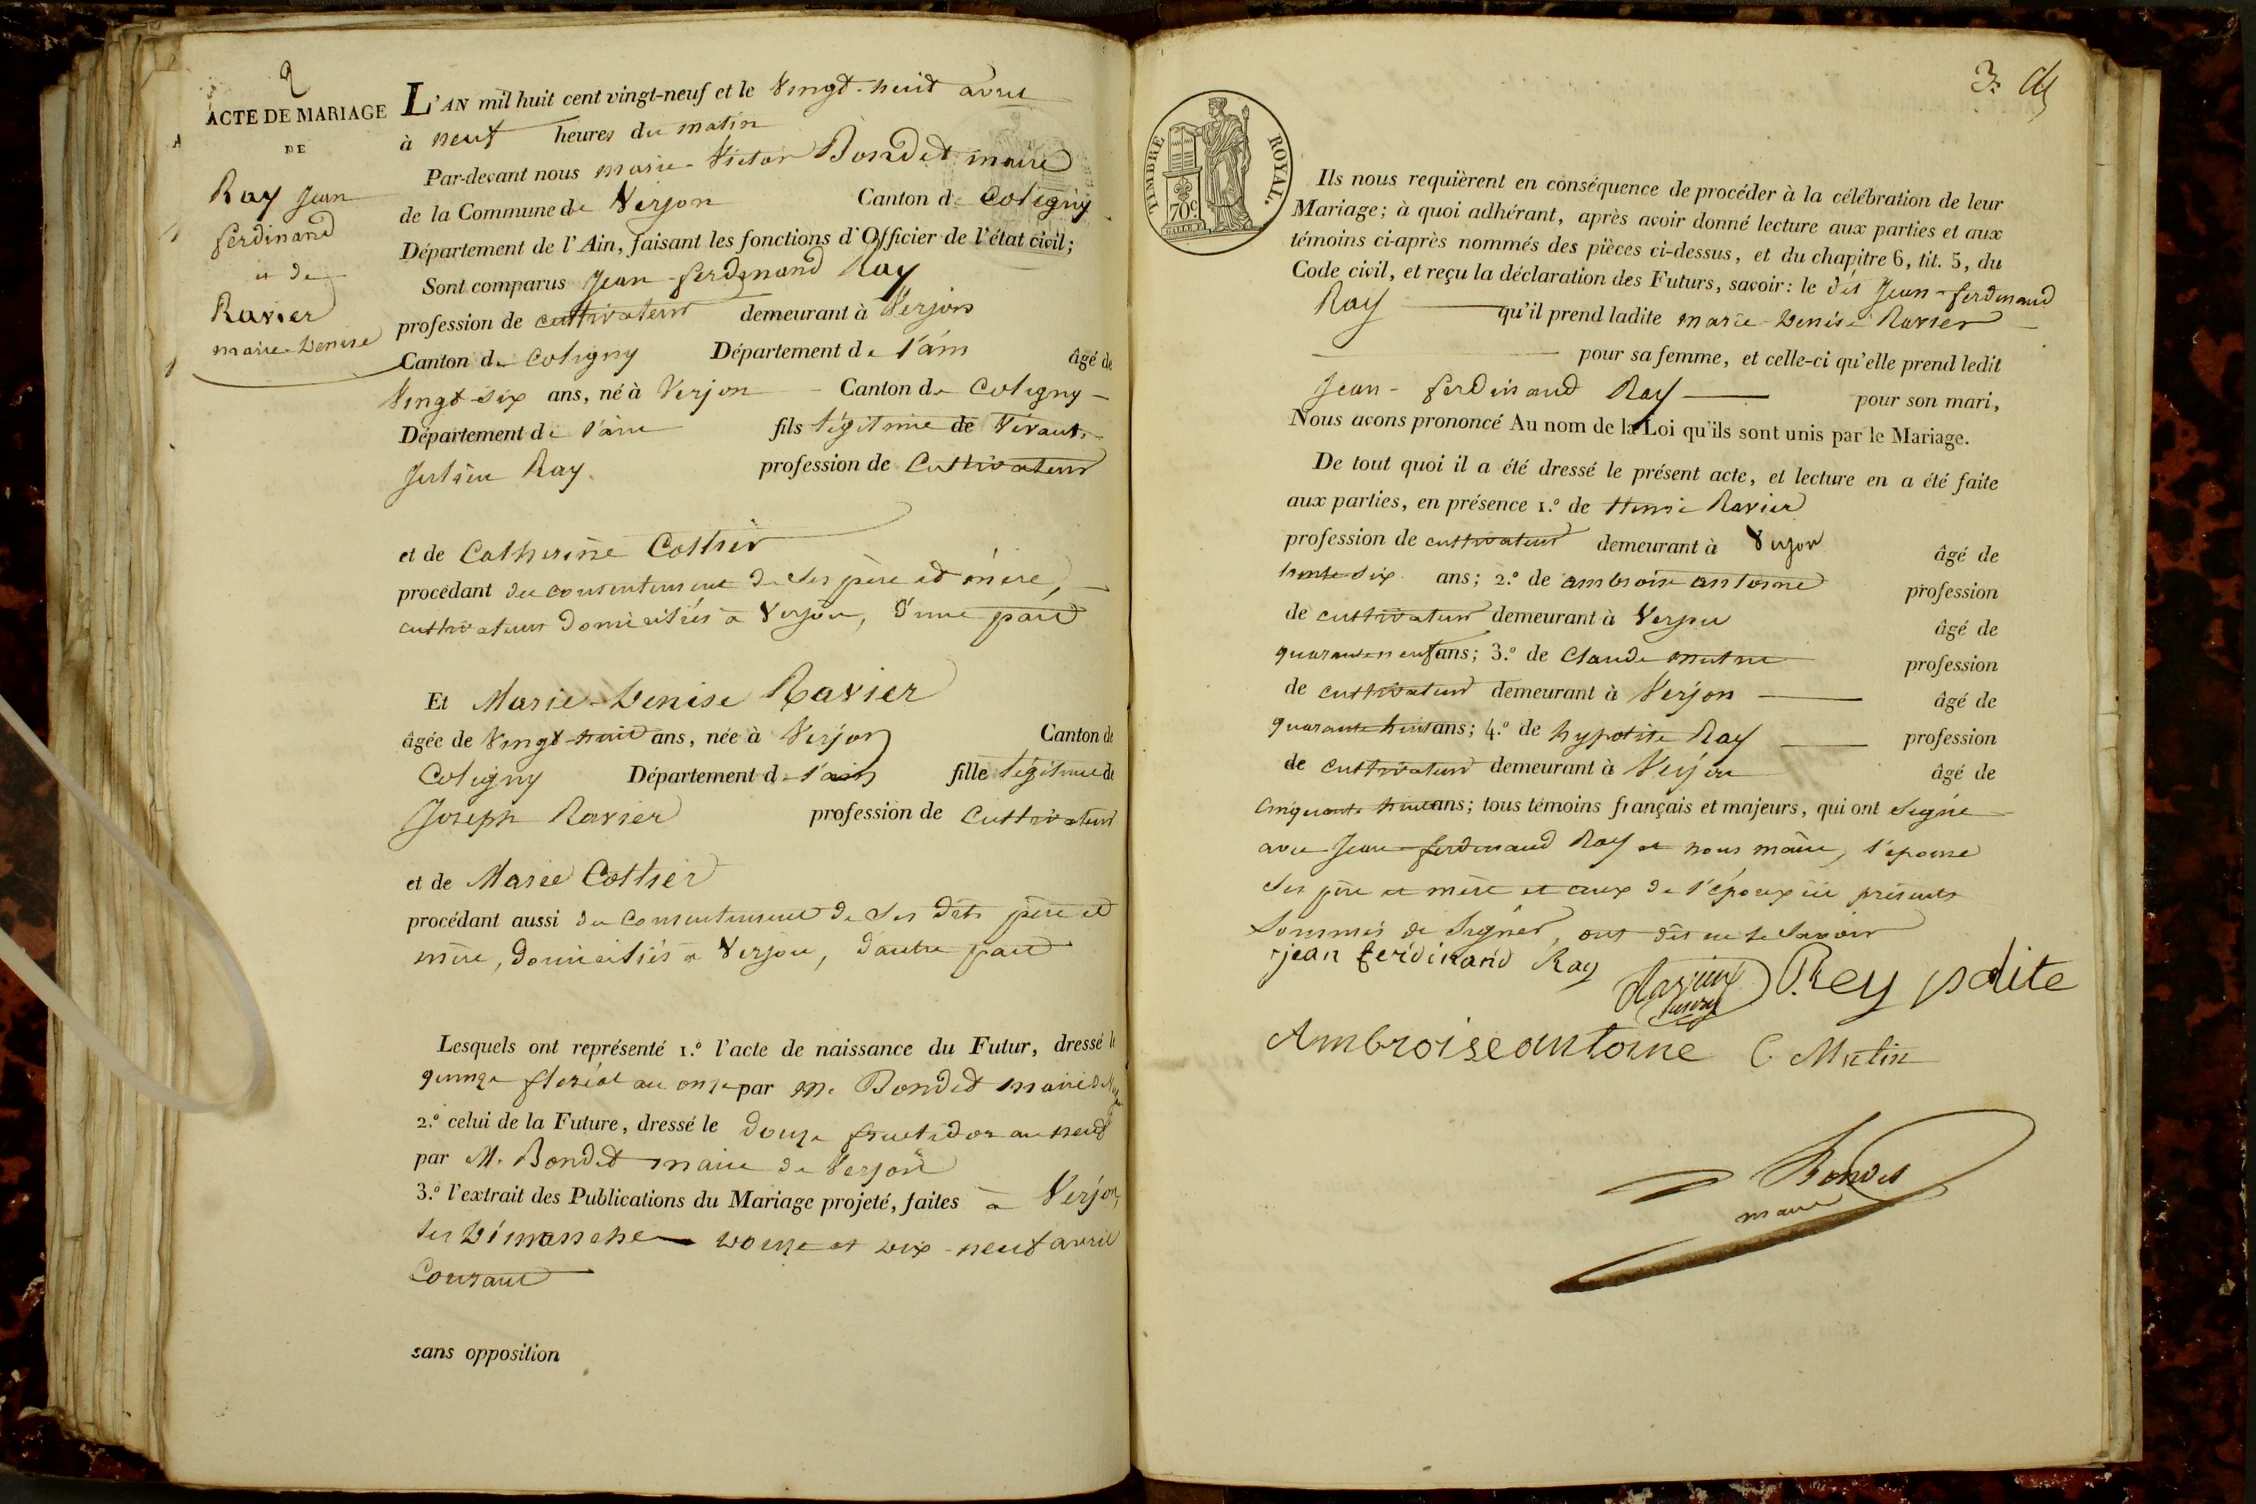 2
ACTE DE MARIAGE
DE
Ray Jean
ferdinand
et de
Ravier
marie-Denise
L'AN mil huit cent vingt-neuf et le Vingt-huit avril
à neuf heures du matin
Par-devant nous marie-Victor Bondet maire
de la Commune de Verjon Canton de Coligny
Département de l'Ain, faisant les fonctions d'Officier de l'état civil;
Sont comparus Jean-ferdinand Ray
profession de cultivateur demeurant à Verjon
Canton de Coligny Département de l'ain âgé de
Vingt-six ans, né à Verjon Canton de Coligny
Département de l'ain fils légitime de
Julien Ray profession de Cultivateur
et de Catherine Cottier
procédant du consentement de ses père et mère,
cultivateurs domiciliés à Verjon, d'une part
Et Marie-Denise Ravier
âgée de Vingt-huit ans, née à Verjon Canton de
Coligny Département de l'ain fille légitime de
Joseph Ravier profession de Cultivateur
et de Marie Cottier
procédant aussi du Consentement de ses dits père et
mère, domiciliés à Verjon, d'autre part
Lesquels ont représenté 1.º l'acte de naissance du Futur, dressé le
quinze floréal an onze par M. Bondet maire de
2.º celui de la Future, dressé le douze fructidor an neuf
par M. Bondet maire de Verjon
3.º l'extrait des Publications du Mariage projeté, faites à Verjon,
les Dimanches Douze et Dix-neuf avril
Courant
sans opposition
3.
TIMBRE ROYAL.
70c
Ils nous requièrent en conséquence de procéder à la célébration de leur
Mariage; à quoi adhérant, après avoir donné lecture aux parties et aux
témoins ci-après nommés des pièces ci-dessus, et du chapitre 6, tit. 5, du
Code civil, et reçu la déclaration des Futurs, savoir: le dit Jean-ferdinand
Ray qu'il prend ladite marie-Denise Ravier
pour sa femme, et celle-ci qu'elle prend ledit
Jean-ferdinand Ray pour son mari,
Nous avons prononcé Au nom de la Loi qu'ils sont unis par le Mariage.
De tout quoi il a été dressé le présent acte, et lecture en a été faite
aux parties, en présence 1.º de Henri Ravier
profession de cultivateur demeurant à Verjon âgé de
trente-six ans; 2.º de ambroise antoine profession
de cultivateur demeurant à Verjon âgé de
quarante neuf ans; 3.º de Claude mutin profession
de cultivateur demeurant à Verjon âgé de
quarante huit ans; 4.º de hypolite Ray profession
de cultivateur demeurant à Verjon âgé de
Cinquante huit ans; tous témoins français et majeurs, qui ont signé
avec Jean-ferdinand Ray et nous maire, l'épouse
ses père et mère et ceux de l'époux ici présents
sommés de signer, ont dit ne le savoir
jean ferdinand Ray
Ravier henry Rey polite
Ambroise antoine C. Mutin
Bondet
maire